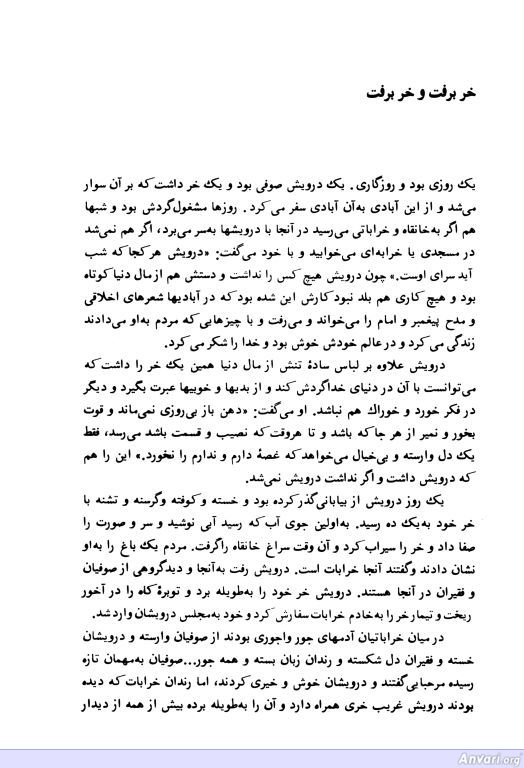 خر برفت و خر برفت
یک روزی بود و روزگاری. یک درویش صوفی بود و یک خر داشت که بر آن سوار
می‌شد و از این آبادی به‌آن آبادی سفر می‌کرد. روزها مشغول‌گردش بود و شبها
هم اگر به‌خانقاه و خراباتی می‌رسید در آنجا با درویشها به‌سر می‌برد، اگر هم نمی‌شد
در مسجدی یا خرابه‌ای می‌خوابید و با خود می‌گفت: «درویش هر کجا که شب
آید سرای اوست.» چون درویش هیچ کس را نداشت و دستش هم از مال دنیا کوتاه
بود و هیچ کاری هم بلد نبود کارش این شده بود که در آبادیها شعرهای اخلاقی
و مدح پیغمبر و امام را می‌خواند و می‌رفت و با چیزهایی که مردم به‌او می‌دادند
زندگی می‌کرد و در عالم خودش خوش بود و خدا را شکر می‌کرد.
درویش علاوه بر لباس سادهٔ تنش از مال دنیا همین یک خر را داشت که
می‌توانست با آن در دنیای خداگردش کند و از بدیها و خوبیها عبرت بگیرد و دیگر
در فکر خورد و خوراک هم نباشد. او می‌گفت: «دهن باز بی‌روزی نمی‌ماند و قوت
بخور و نمیر از هر جا که باشد و تا هر وقت که نصیب و قسمت باشد می‌رسد، فقط
یک دل وارسته و بی‌خیال می‌خواهد که غصهٔ دارم و ندارم را نخورد.» این را هم
که درویش داشت و اگر نداشت درویش نمی‌شد.
یک روز درویش از بیابانی‌گذر کرده بود و خسته و کوفته و گرسنه و تشنه با
خر خود به‌یک ده رسید. به‌اولین جوی آب که رسید آبی نوشید و سر و صورت را
صفا داد و خر را سیراب کرد و آن وقت سراغ خانقاه را گرفت. مردم یک باغ را به‌او
نشان دادند و گفتند آنجا خرابات است. درویش رفت به‌آنجا و دید گروهی از صوفیان
و فقیران در آنجا هستند. درویش خر خود را به‌طویله برد و توبرهٔ کاه را در آخور
ریخت و تیمار خر را به‌خادم خرابات سفارش کرد و خود به‌مجلس درویشان وارد شد.
در میان خراباتیان آدمهای جور واجوری بودند از صوفیان وارسته و درویشان
خسته و فقیران دل شکسته و رندان زبان بسته و همه جور...صوفیان به‌مهمان تازه
رسیده مرحبایی گفتند و درویشان خوش و خیری کردند، اما رندان خرابات که دیده
بودند درویش غریب خری همراه دارد و آن را به‌طویله برده بیش از همه از دیدار
Anvari.org